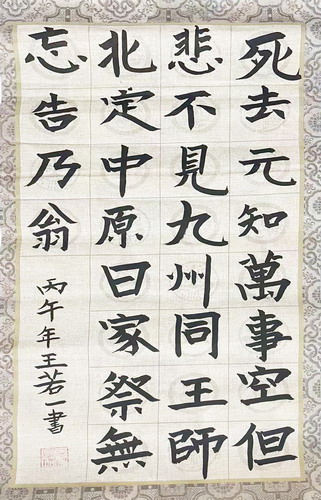 死去元知萬事空但
悲不見九州同王師
北定中原日家祭無
忘告乃翁
丙午年王若一書